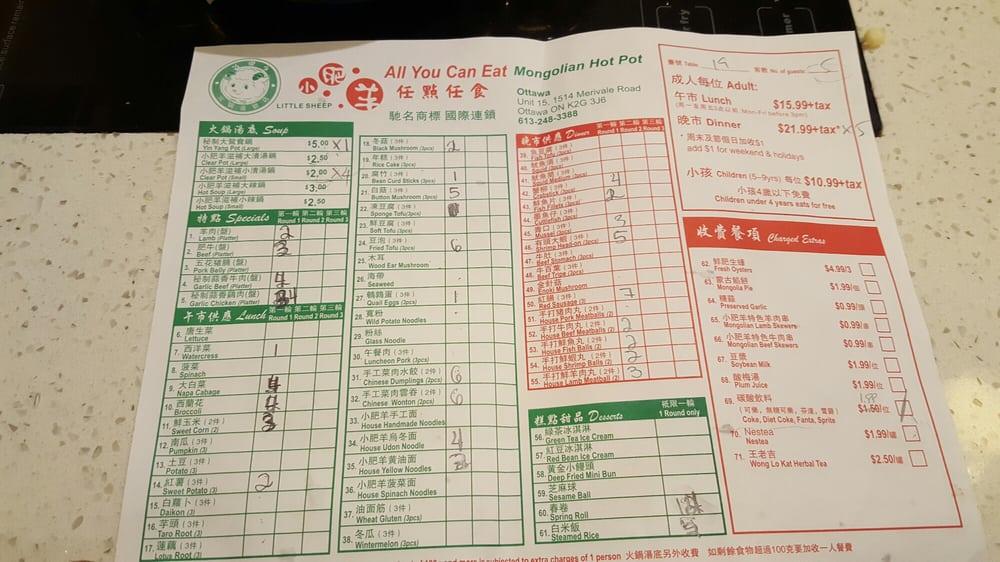 LITTLE SHEEP
小肥羊
All You Can Eat Mongolian Hot Pot
任點任食
馳名商標 國際連鎖
Ottawa
Unit 15, 1514 Merivale Road
Ottawa ON K2G 3J6
613-248-3388
Table 19 No of guests 5
成人每位 Adult:
午市 Lunch $15.99+tax
晚市 Dinner $21.99+tax* x5
*周末及節假日加收$1
add $1 for weekend & holidays
小孩 Children (5–9yrs) 每位 $10.99+tax
小孩4歲以下免費
Children under 4 years eats for free
火鍋湯底 Soup
秘制大鴛鴦鍋
Yin Yang Pot (Large) $5.00 x1
小肥羊滋補大清湯鍋
Clear Pot (Large) $2.50
小肥羊滋補小清湯鍋
Clear Pot (Small) $2.00 x4
小肥羊滋補大辣鍋
Hot Soup (Large) $3.00
小肥羊滋補小辣鍋
Hot Soup (Small) $2.50
特點 Specials 第一輪 Round 1 第二輪 Round 2 第三輪 Round 3
1. 羊肉(盤)
Lamb (Platter) 2
2. 肥牛(盤)
Beef (Platter) 3
3. 五花豬腩(盤)
Pork Belly (Platter)
4. 秘制蒜香牛肉(盤)
Garlic Beef (Platter) 4
5. 秘制蒜香雞肉(盤)
Garlic Chicken (Platter)
午市供應 Lunch 第一輪 Round 1 第二輪 Round 2 第三輪 Round 3
6. 唐生菜
Lettuce
7. 西洋菜
Watercress 1
8. 菠菜
Spinach
9. 大白菜
Napa Cabage 4
10. 西蘭花
Broccoli 4
11. 鮮玉米 (2件)
Sweet Corn (2) 3
12. 南瓜 (3件)
Pumpkin (3)
13. 土豆 (3件)
Potato (3)
14. 紅薯 (3件)
Sweet Potato (3) 2
15. 白蘿卜 (3件)
Daikon (3)
16. 芋頭 (3件)
Taro Root (3)
17. 蓮藕 (3件)
Lotus Root (3)
18. 冬菇 (3件)
Black Mushroom (3pcs) 2
19. 年糕 (3件)
Rice Cake (3pcs)
20. 腐竹 (3件)
Bean Curd Sticks (3pcs) 1
21. 白菇 (3件)
Button Mushroom (3pcs) 5
22. 凍豆腐 (3件)
Sponge Tofu (3pcs)
23. 鮮豆腐 (3件)
Soft Tofu (3pcs)
24. 豆泡 (3件)
Fried Tofu (3pcs) 6
25. 木耳
Wood Ear Mushroom
26. 海帶
Seaweed
27. 鵪鶉蛋 (3件)
Quail Eggs (3pcs) 1
28. 寬粉
Wild Potato Noodles
29. 粉絲
Glass Noodle
30. 午餐肉 (3件)
Luncheon Pork (3pcs)
31. 手工菜肉水餃 (2件)
Chinese Dumplings (2pcs) 6
32. 手工菜肉雲吞 (2件)
Chinese Wonton (2pcs) 6
33. 小肥羊手工面
House Handmade Noodles
34. 小肥羊烏冬面
House Udon Noodle 4
35. 小肥羊黄油面
House Yellow Noodles 2
36. 小肥羊菠菜面
House Spinach Noodles
37. 油面筋 (3件)
Wheat Gluten (3pcs)
38. 冬瓜 (3件)
Wintermelon (3pcs)
晚市供應 Dinner 第一輪 Round 1 第二輪 Round 2 第三輪 Round 3
39. 魚豆腐 (3件)
Fish Tofu (3pcs)
40. 魷魚筒 (3件)
Squid Tube (3pcs)
41. 魷魚須 (3件)
Squid Medium (3pcs) 4
42. 蟹柳 (3件)
Crabstick (3pcs) 2
43. 鮮魚片 (3件)
Fish Fillets (3pcs)
44. 墨魚仔 (3件)
Cuttlefish (3pcs) 3
45. 青口 (3件)
Mussel (3pcs) 5
46. 有頭大蝦 (3件)
Shrimp Head-on (3pcs)
47. 牛肚 (3件)
Beef Stomach (3pcs)
48. 牛百葉 (3件)
Beef Tripe (3pcs)
49. 金針菇
Enoki Mushroom
50. 紅腸 (3件)
Red Sausage (3) 7
51. 手打豬肉丸 (2件)
House Pork Meatballs (2)
52. 手打牛肉丸 (2件)
House Beef Meatballs (2) 2
53. 手打鮮魚丸 (2件)
House Fish Balls (2) 2
54. 手打鮮蝦丸 (2件)
House Shrimp Balls (2) 2
55. 手打鮮羊肉丸 (2件)
House Lamb Meatball (2) 3
糕點甜品 Desserts 祇限一輪 1 Round only
56. 綠茶冰淇淋
Green Tea Ice Cream
57. 紅豆冰淇淋
Red Bean Ice Cream
58. 黄金小饅頭
Deep Fried Mini Bun
59. 芝麻球
Sesame Ball
60. 春卷
Spring Roll
61. 白米飯
Steamed Rice 5
收費餐項 Charged Extras
62. 鮮肥生蠔
Fresh Oysters $4.99/3
63. 蒙古餡餅
Mongolia Pie $0.99/個
64. 糖蒜
Preserved Garlic $0.99/個
65. 小肥羊特色羊肉串
Mongolian Lamb Skewers $0.99/串
66. 小肥羊特色牛肉串
Mongolian Beef Skewers $0.99/串
67. 豆漿
Soybean Milk $1.99/位
68. 酸梅湯
Plum Juice $1.99/位
69. 碳酸飲料 1.99
(可樂,無糖可樂,芬達,雪碧) $1.50/位
Coke, Diet Coke, Fanta, Sprite
70. Nestea
Nestea $1.99/罐
71. 王老吉
Wong Lo Kat Herbal Tea $2.50/罐
and more is subjected to extra charges of 1 person 火鍋湯底另外收費 如剩餘食物超過100克要加收一人餐費